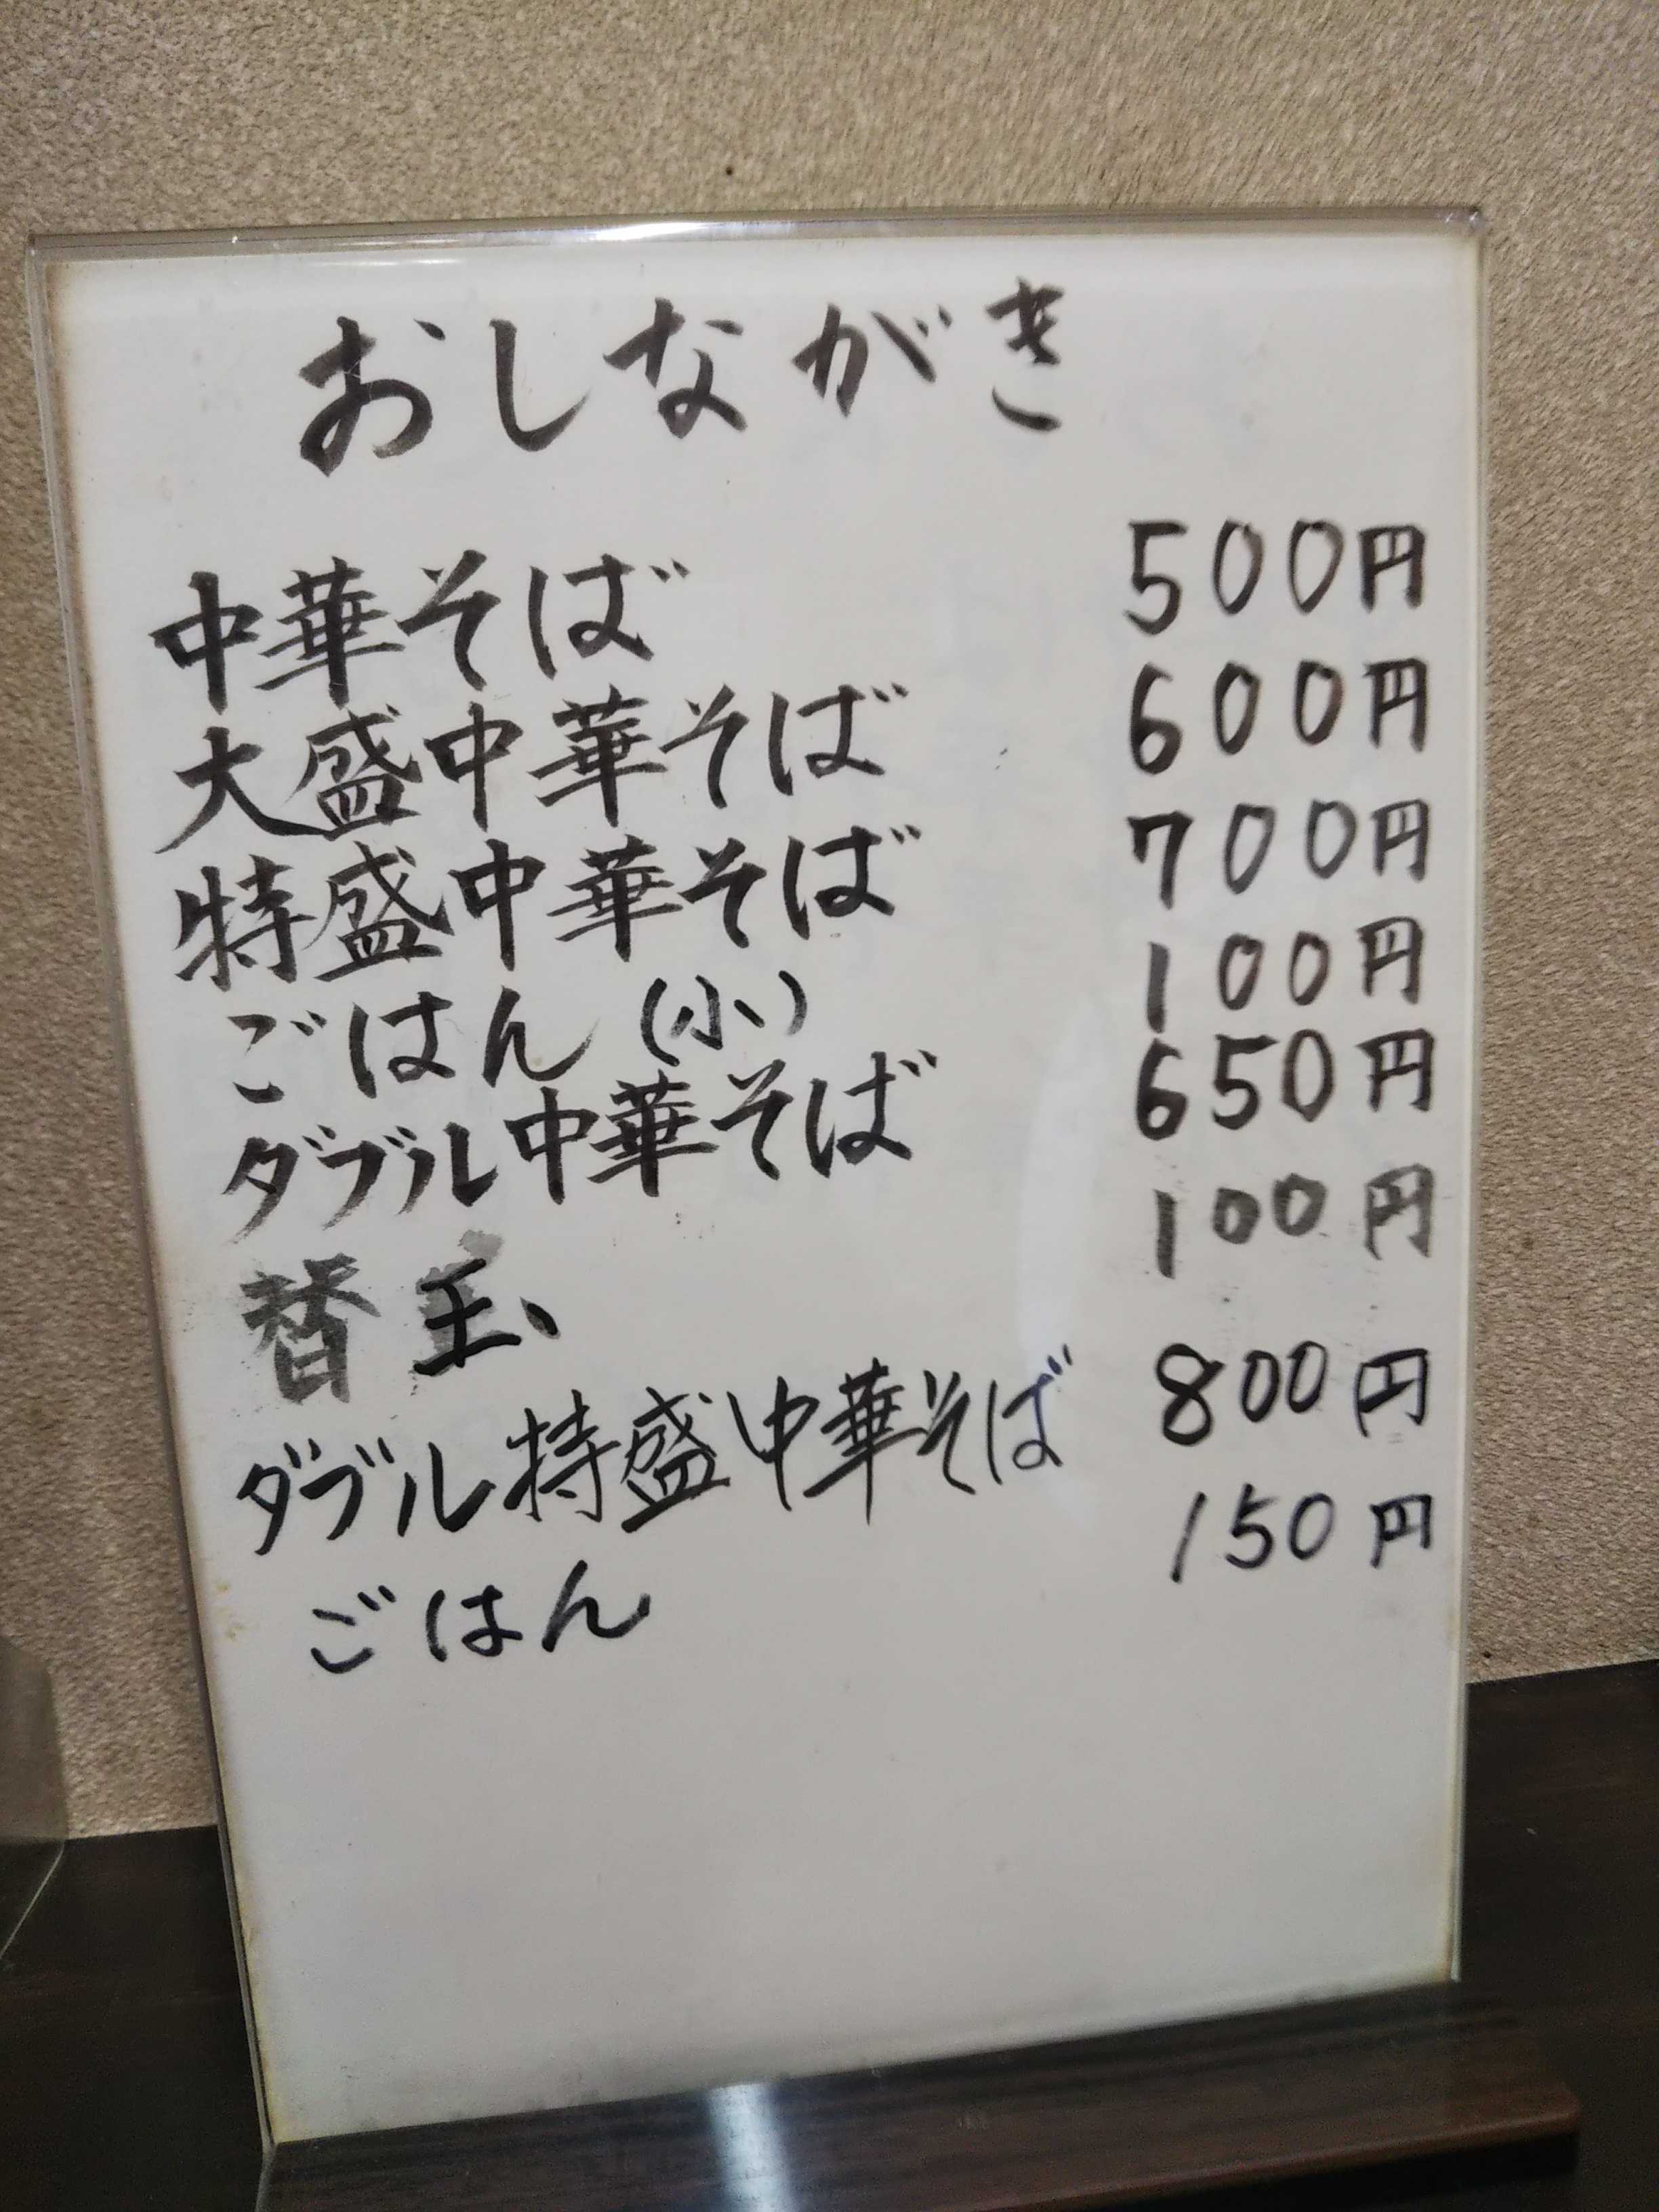 おしながき
中華そば 500円
大盛中華そば 600円
特盛中華そば 700円
ごはん(小) 100円
ダブル中華そば 650円
替玉 100円
ダブル特盛中華そば 800円
ごはん 150円